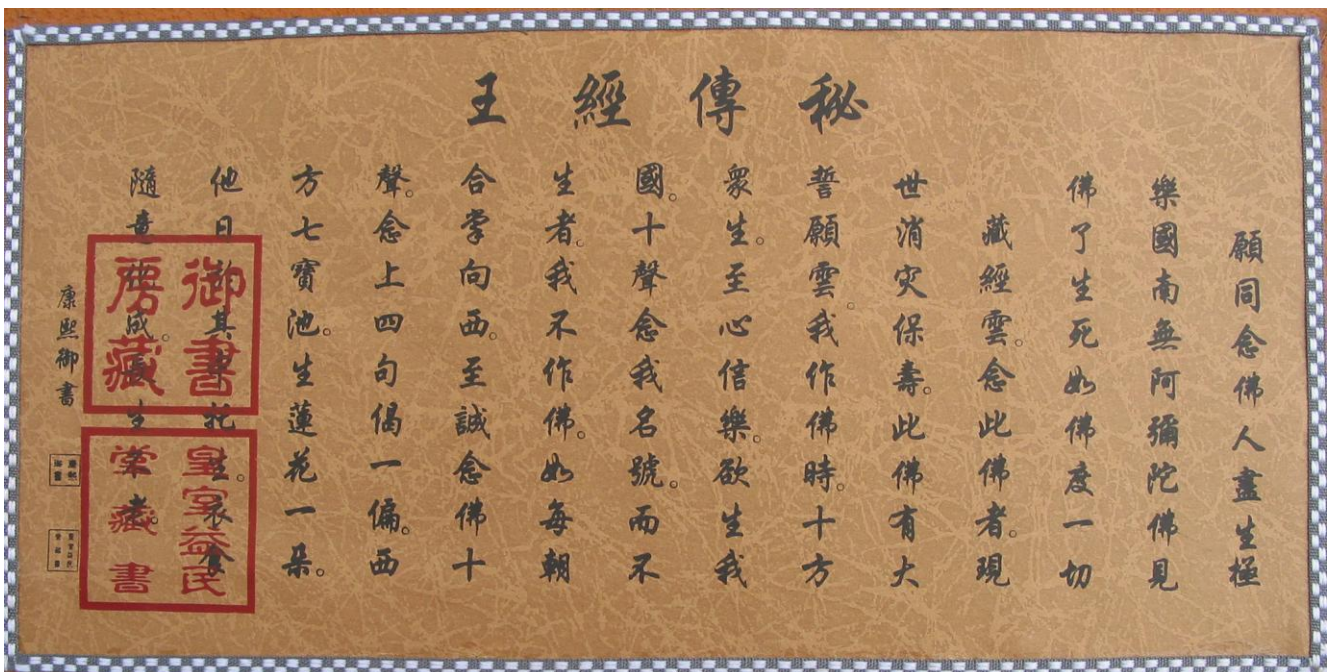 秘傳經王
願同念佛人盡生極
樂國南無阿彌陀佛見
佛了生死如佛度一切
藏經雲。念此佛者。現
世消灾保壽。此佛有大
誓願雲。我作佛時。十方
衆生。至心信樂。欲生我
國。十聲念我名號。而不
生者。我不作佛。如每朝
合掌向西。至誠念佛十
聲。念上四句偈一偏。西
方七寶池。生蓮花一朵。
他日其托生。衣食
隨意成。生老。
康熙御書
御書
房藏
皇室益民
堂藏書